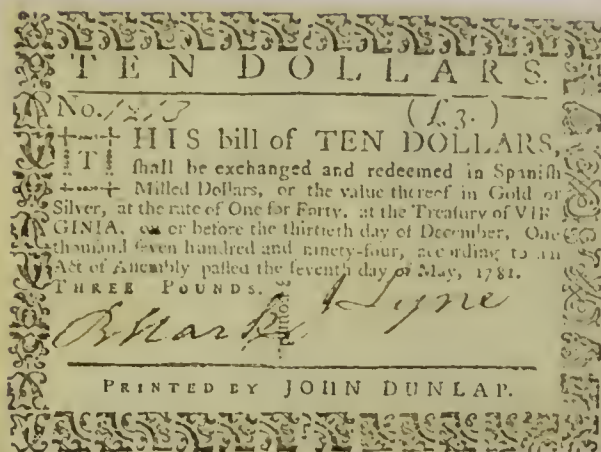 TEN DOLLARS.
No. 1213 (£3.)
THIS bill of TEN DOLLARS,
ſhall be exchanged and redeemed in Spaniſh
Milled Dollars, or the value thereof in Gold or
Silver, at the rate of One for Forty, at the Treaſury of VIR
GINIA, on or before the thirtieth day of December, One
thouſand ſeven hundred and ninety-four, according to an
Act of Aſſembly paſſed the ſeventh day of May, 1781.
THREE POUNDS.
Lyne
PRINTED BY JOHN DUNLAP.